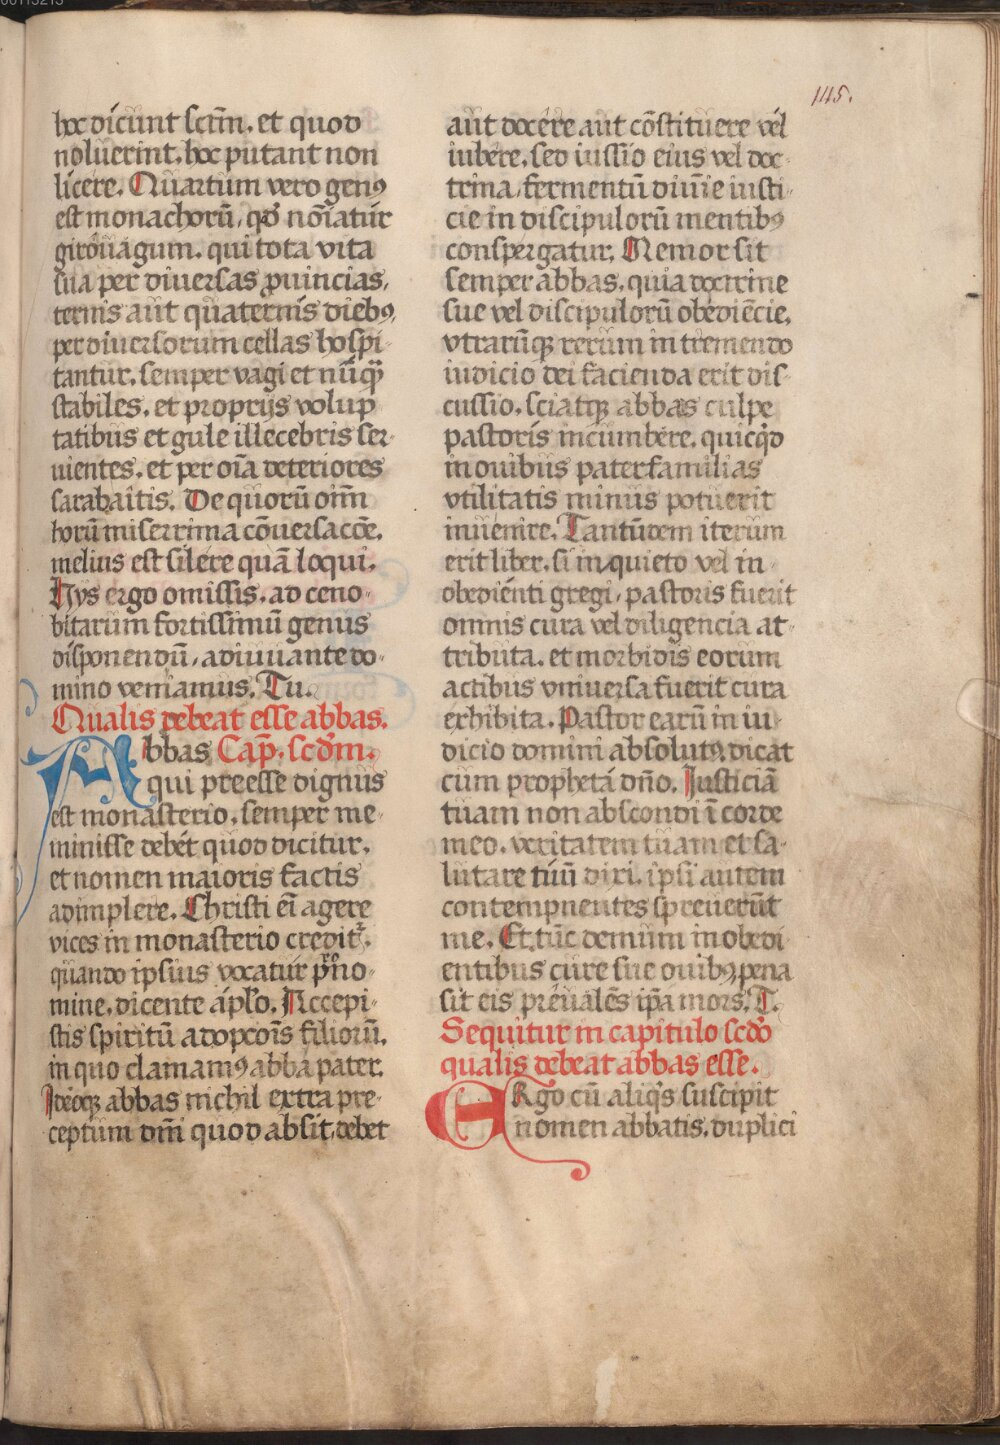 145.
hoc dicunt scm̄, et quod
noluerint, hoc putant non
licere. Quartum vero genꝰ
est monachorū, qd̄ noīatur
girouagum. qui tota vita
sua per diuersas ꝓuincias,
ternis aut quaternis diebꝰ,
per diuersorum cellas hospi-
tantur, semper vagi et nūqꝫ
stabiles, et proprijs volup
tatibus et gule illecebris ser-
uientes, et per oīa deteriores
sarabaitis. De quorū oīm̄
horū miserrima cōuersacōe,
melius est silere quā loqui.
Hys ergo omissis, ad ceno-
bitarum fortissimū genus
disponendū, adiuuante do-
mino veniamus. Tu.
Qualis debeat esse abbas.
Abbas Cap̄. scd̄m.
qui preesse dignus
est monasterio, semper me-
minisse debet quod dicitur,
et nomen maioris factis
adimplere. Christi eī agere
vices in monasterio credit᷑,
quando ipsius vocatur p̄no-
mine, dicente apl̄o. Accepi-
stis spiritū adopcōīs filiorū,
in quo clamamꝰ abba pater.
Ideoqꝫ abbas nichil extra pre-
ceptum dm̄i quod absit, debet
aut docere aut cōstituere vel
iubere, sed iussio eius vel doc-
trina, fermentū diuīe iusti-
cie in discipulorū mentibꝰ
conspergatur. Memor sit
semper abbas, quia doctrine
sue vel discipulorū obediēcie,
vtrarūqꝫ rerum in tremendo
iudicio dei facienda erit dis-
cussio, sciatqꝫ abbas culpe
pastoris incumbere, quicqͥd
in ouibus paterfamilias
vtilitatis minus potuerit
inuenire. Tantūdem iterum
erit liber, si inquieto vel in-
obedienti gregi, pastoris fuerit
omnis cura vel diligencia at-
tributa, et morbidis eorum
actibus vniuersa fuerit cura
exhibita. Pastor earū in iu-
dicio domini absolutꝰ, dicat
cum propheta dn̄o. Justiciā
tuam non abscondi ī corde
meo, veritatem tuam et sa-
lutare tuū dixi, ipsi autem
contempnentes spreuerūt
me. Et tūc demum inobedi-
entibus cure sue ouibꝰ, pena
sit eis preualēs ip̄a mors. T.
Sequitur in capitulo scd̄o
qualis debeat abbas esse.
ERgo cū aliqͥs suscipit
nomen abbatis, duplici